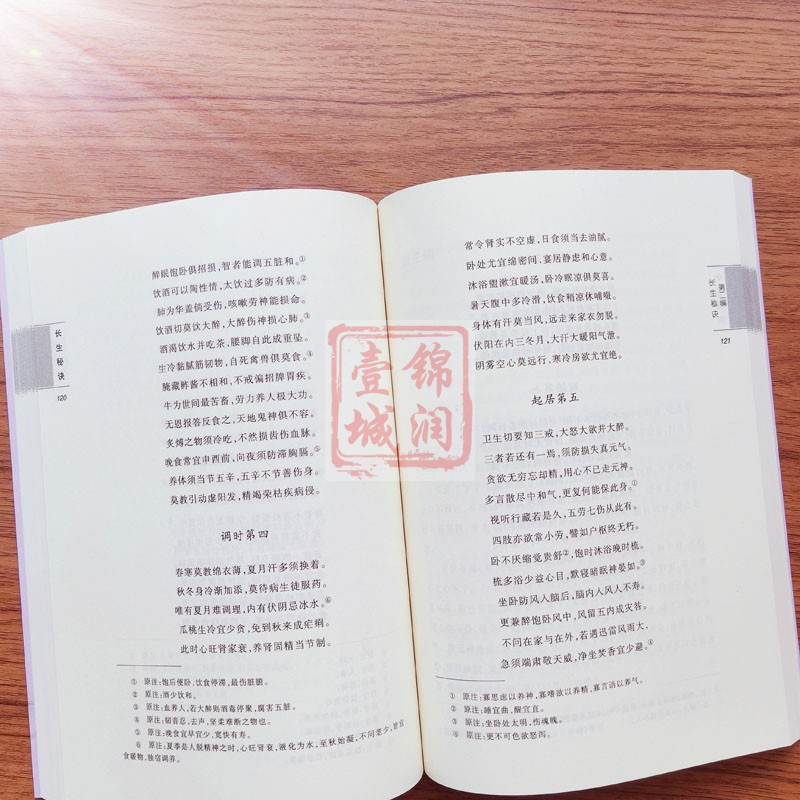 长生秘诀
120
醉眠饱卧俱招损,智者能调五脏和。①
饮酒可以陶性情,太饮过多防有病。②
肺为华盖倘受伤,咳嗽劳神能损命。
饮酒切莫饮大醉,大醉伤神损心肺。③
酒渴饮水并吃茶,腰脚自此成重坠。
生冷黏腻筋韧物,自死禽兽俱莫食。④
腌藏鲊酱不相和,不戒偏招脾胃疾。
牛为世间最苦畜,劳力养人极大功。
无恩报答反食之,天地鬼神俱不容。
炙煿之物须冷吃,不然损齿伤血脉。
晚食常宜申酉前,向夜须防滞胸膈。⑤
养体须当节五辛,五辛不节善伤身。
莫教引动虚阳发,精竭荣枯疾病侵。
调时第四
春寒莫教绵衣薄,夏月汗多须换着。
秋冬身冷渐加添,莫待病生徒服药。
唯有夏月难调理,内有伏阴忌冰水。⑥
瓜桃生冷宜少食,免到秋来成疟痢。
此时心旺肾家衰,养肾固精当节制。
① 原注:饱后便卧,饮食停滞,最伤脏腑。
② 原注:酒少饮和。
③ 原注:血养人,若大醉则酒毒停聚,腐害五脏。
④ 原注:韧音忍,去声,坚柔难断之物也。
⑤ 原注:晚食宜早宜少,宽快有寿。
⑥ 原注:夏季是人脱精神之时,心旺肾衰,液化为水,至秋始凝,不问老少,皆宜
食暖物,独宿调养。
常令肾实不空虚,日食须当去油腻。
卧处尤宜绵密间,宴居静虑和心意。
沐浴盥漱宜暖汤,卧冷眠凉俱莫喜。
暑天腹中多冷滑,饮食稍凉休哺啜。
身体有汗莫当风,远走来家衣勿脱。
伏阳在内三冬月,大汗大暖阳气泄。
阴雾空心莫远行,寒冷房欲尤宜绝。
起居第五
卫生切要知三戒,大怒大欲并大醉。
三者若还有一焉,须防损失真元气。
贪欲无穷忘却精,用心不已走元神。
多言散尽中和气,更复何能保此身。①
视听行藏若是久,五劳七伤从此有。
四肢亦欲常小劳,譬如户枢终无朽。
卧不厌缩觉贵舒②,饱时沐浴晚时梳。
梳多浴少益心目,默寝暗眠神晏如。③
坐卧防风入脑后,脑内入风人不寿。
更兼醉饱卧风中,风留五内成灾咎。
不问在家与在外,若遇迅雷风雨大、
急须端肃敬天威,净坐焚香宜少避。④
① 原注:寡思虑以养神,寡嗜欲以养精,寡言语以养气。
② 原注:睡宜曲,醒宜直。
③ 原注:坐卧处太明,伤魂魄。
④ 原注:更不可色欲怒泻。
第二编
长生秘诀
121
锦润
壹城